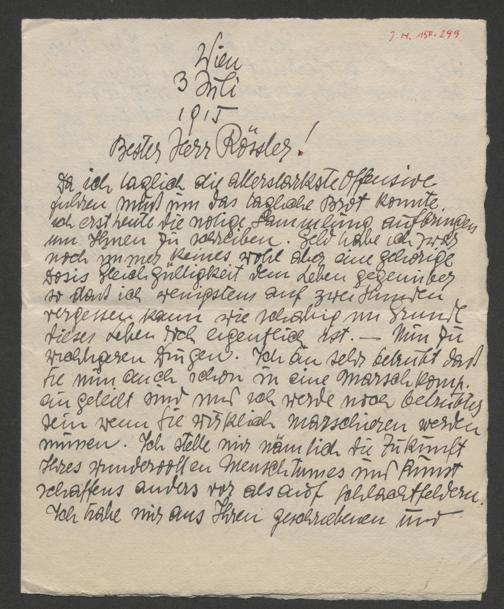 J. N. 158.299
Wien
3 Juli
1915
Bester Herr Rössler!
Da ich täglich die allerstärkste Offensive
führen muß um das tägliche Brot konnte
ich erst heute die nötige Sammlung aufbringen
um Ihnen zu schreiben. Geld habe ich zwar
noch immer keines wohl aber eine gehörige
Dosis Gleichgültigkeit dem Leben gegenüber
so daß ich wenigstens auf zwei Stunden
vergessen kann wie schäbig im Grunde
dieses Leben doch eigentlich ist. — Nun zu
wichtigeren Dingen. Ich bin sehr betrübt daß
Sie nun auch schon in eine Marschkomp.
eingeteilt sind und ich werde noch betrübter
sein wenn Sie wirklich marschieren werden
müssen. Ich stelle mir nämlich die Zukunft
Ihres wundervollen Menschtumes und Kunst
schaffens anders vor als auf Schlachtfeldern.
Ich habe mir aus Ihren geschriebenen und